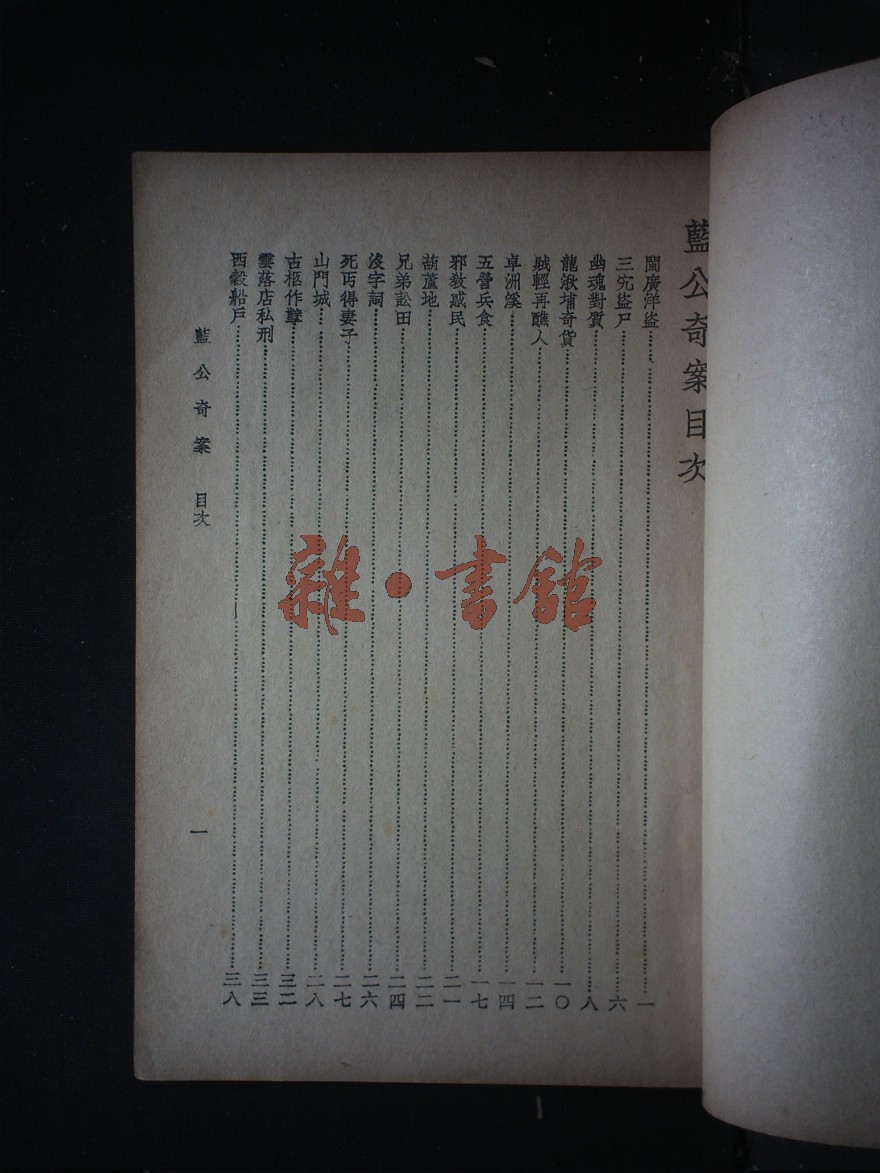 藍公奇案目次
閩廣洋盜 一
三宄盜尸 六
幽魂對質 八
龍湫埔奇貨 一〇
賊輕再醮人 一二
卓洲溪 一四
五營兵食 一七
邪教惑民 二一
葫蘆地 二二
兄弟訟田 二四
沒字詞 二六
死丐得妻子 二七
山門城 二八
古柩作孽 三二
雲落店私刑 三三
西穀船戶 三八
藍公奇案 目次
一
雜·書館